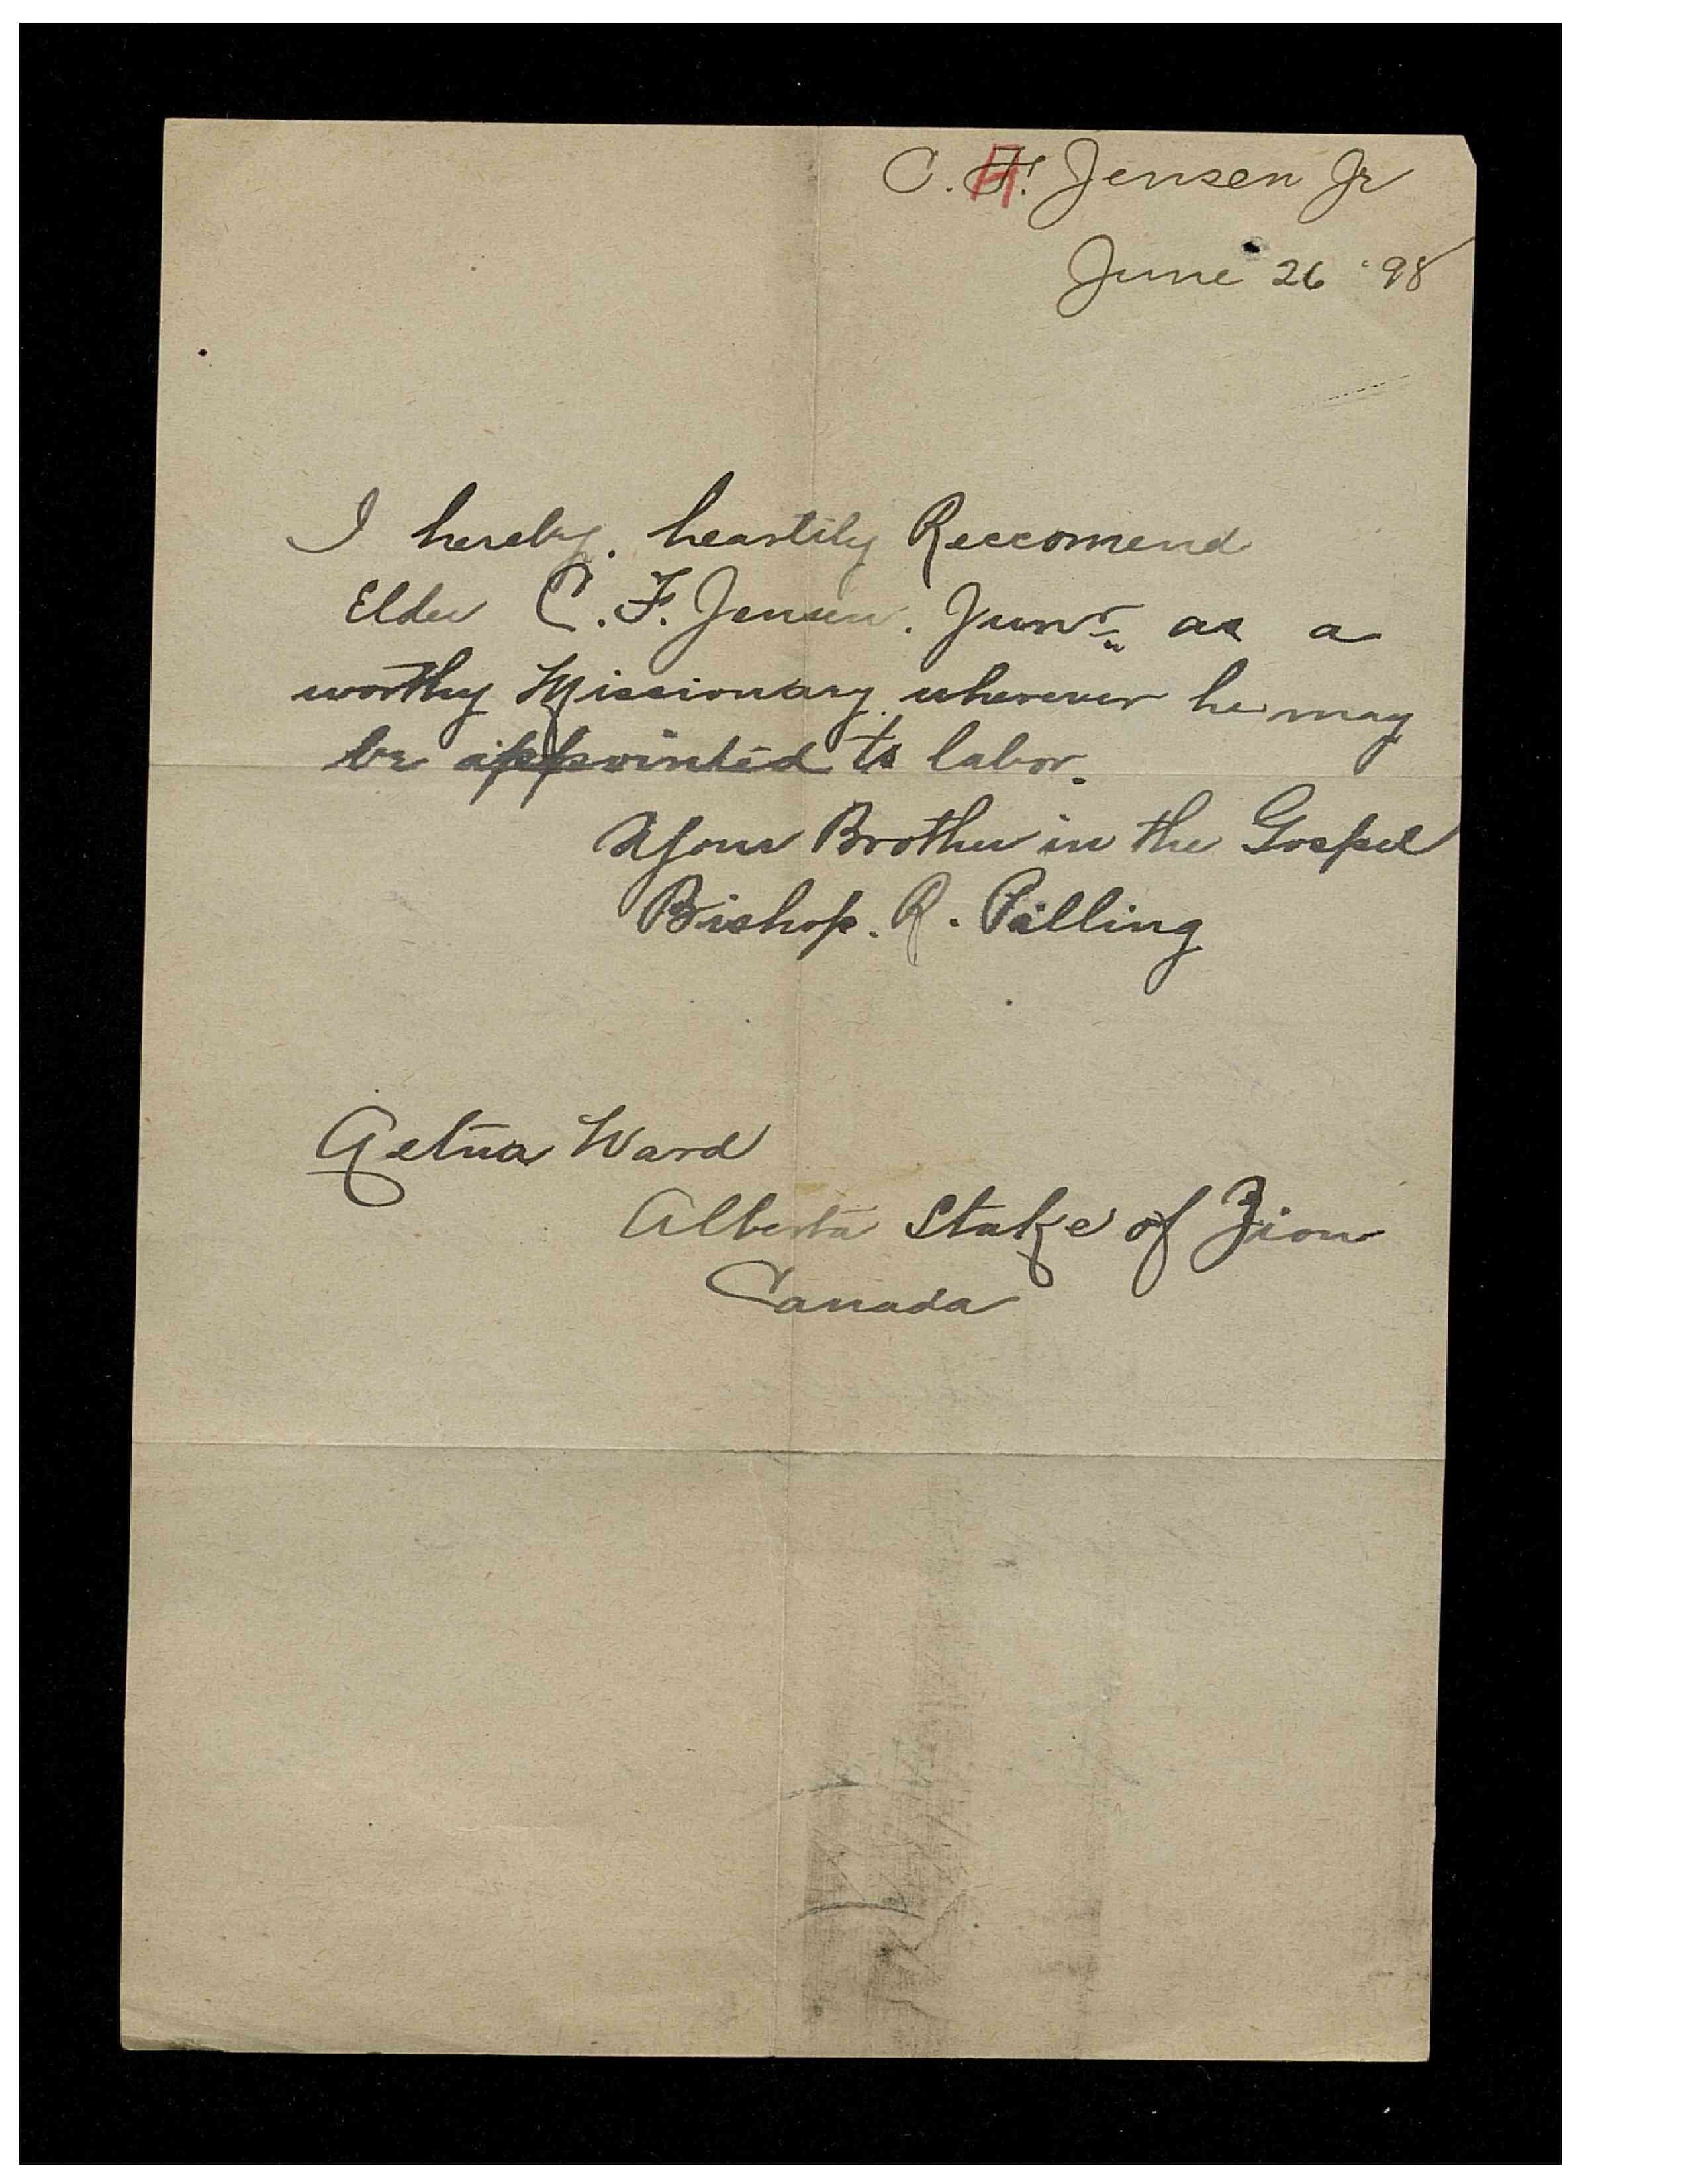 C. H. Jensen Jr
June 26 '98
I hereby. heartily Reccomend
Elder C. F. Jensen. Junr. as a
worthy Missionary wherever he may
be appointed to labor.
Your Brother in the Gospel
Bishop. R. Pilling
Aetna Ward
Alberta Stake of Zion
Canada